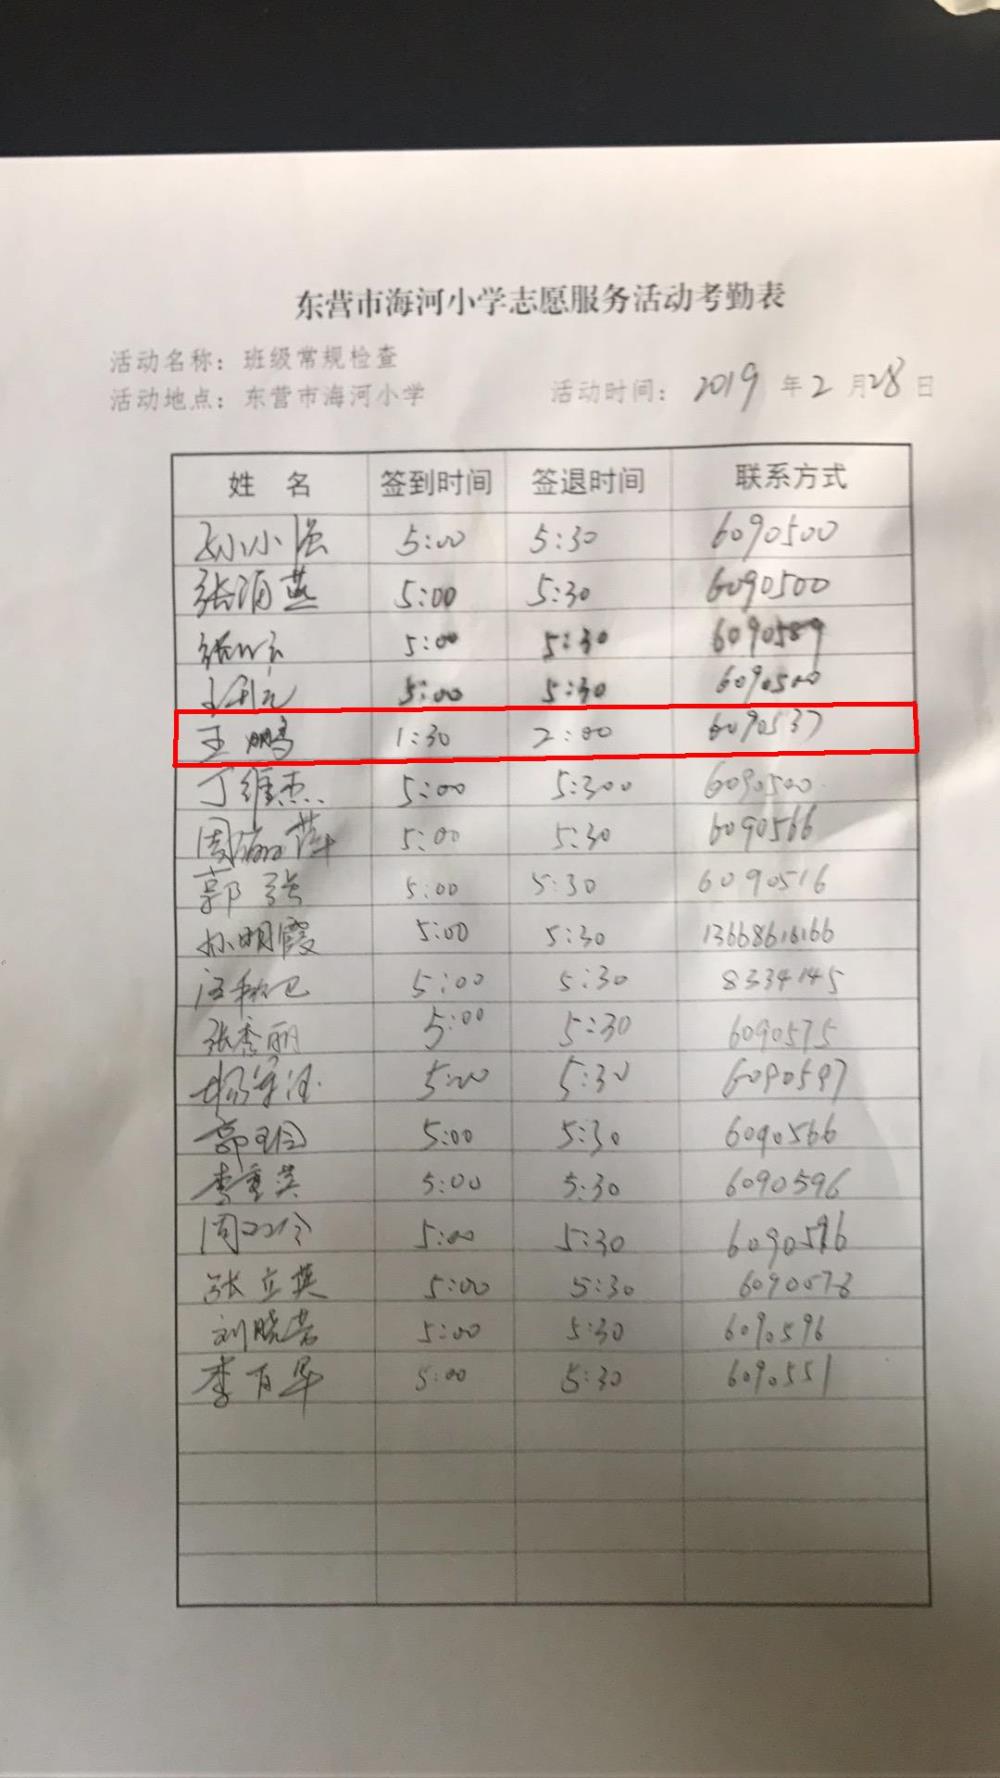 东营市海河小学志愿服务活动考勤表
活动名称：班级常规检查
活动地点：东营市海河小学 活动时间：2019年2月28日
姓 名 签到时间 签退时间 联系方式
孙小强 5:00 5:30 6090500
张海燕 5:00 5:30 6090500
5:00 5:30 6090589
5:00 5:30 6090500
王鹏 1:30 2:00 6090537
丁维杰 5:00 5:300 6090500
周海萍 5:00 5:30 6090566
郭强 5:00 5:30 6090516
孙明霞 5:00 5:30 13668616166
5:00 5:30 8334145
张秀丽 5:00 5:30 6090575
5:00 5:30 6090597
郭 5:00 5:30 6090566
李重英 5:00 5:30 6090596
周 5:00 5:30 6090596
张立英 5:00 5:30 6090578
刘晓芳 5:00 5:30 6090596
李百华 5:00 5:30 6090551